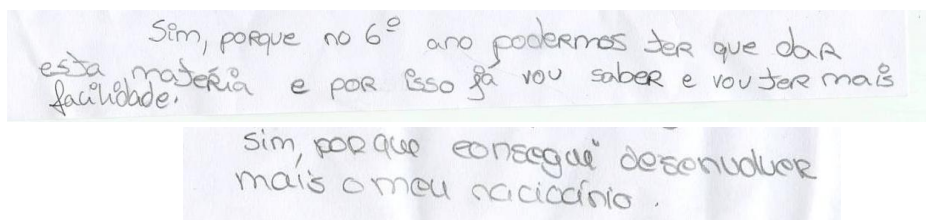 Sim, porque no 6º ano podermos ter que dar
esta matéria e por isso já vou saber e vou ter mais
facilidade.
sim, porque consegui desenvolver
mais o meu raciocínio.